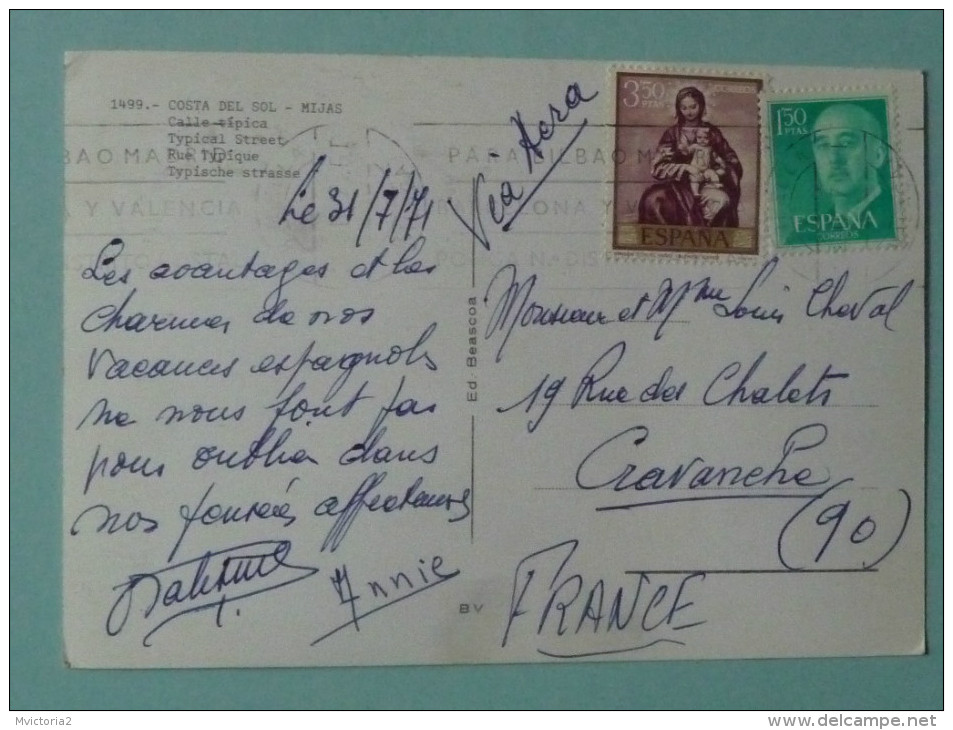 1499.- COSTA DEL SOL - MIJAS
Calle típica
Typical Street
Rue Typique
Typische strasse
Le 31/7/71
Via Aera
3,50 PTAS
CORREOS
ESPAÑA
1,50 PTAS
ESPAÑA
CORREOS
PARA BILBAO MA
Y VALENCIA
Les avantages et les
charmes de nos
vacances espagnols
ne nous font pas
pour oublier dans
nos pensées affectueuses
Annie
Ed. Beascoa
BV
Monsieur et Mme Louis Chaval
19 Rue des Chalets
Cravanche
(90)
FRANCE
Mvictoria2
http://www.delcampe.net